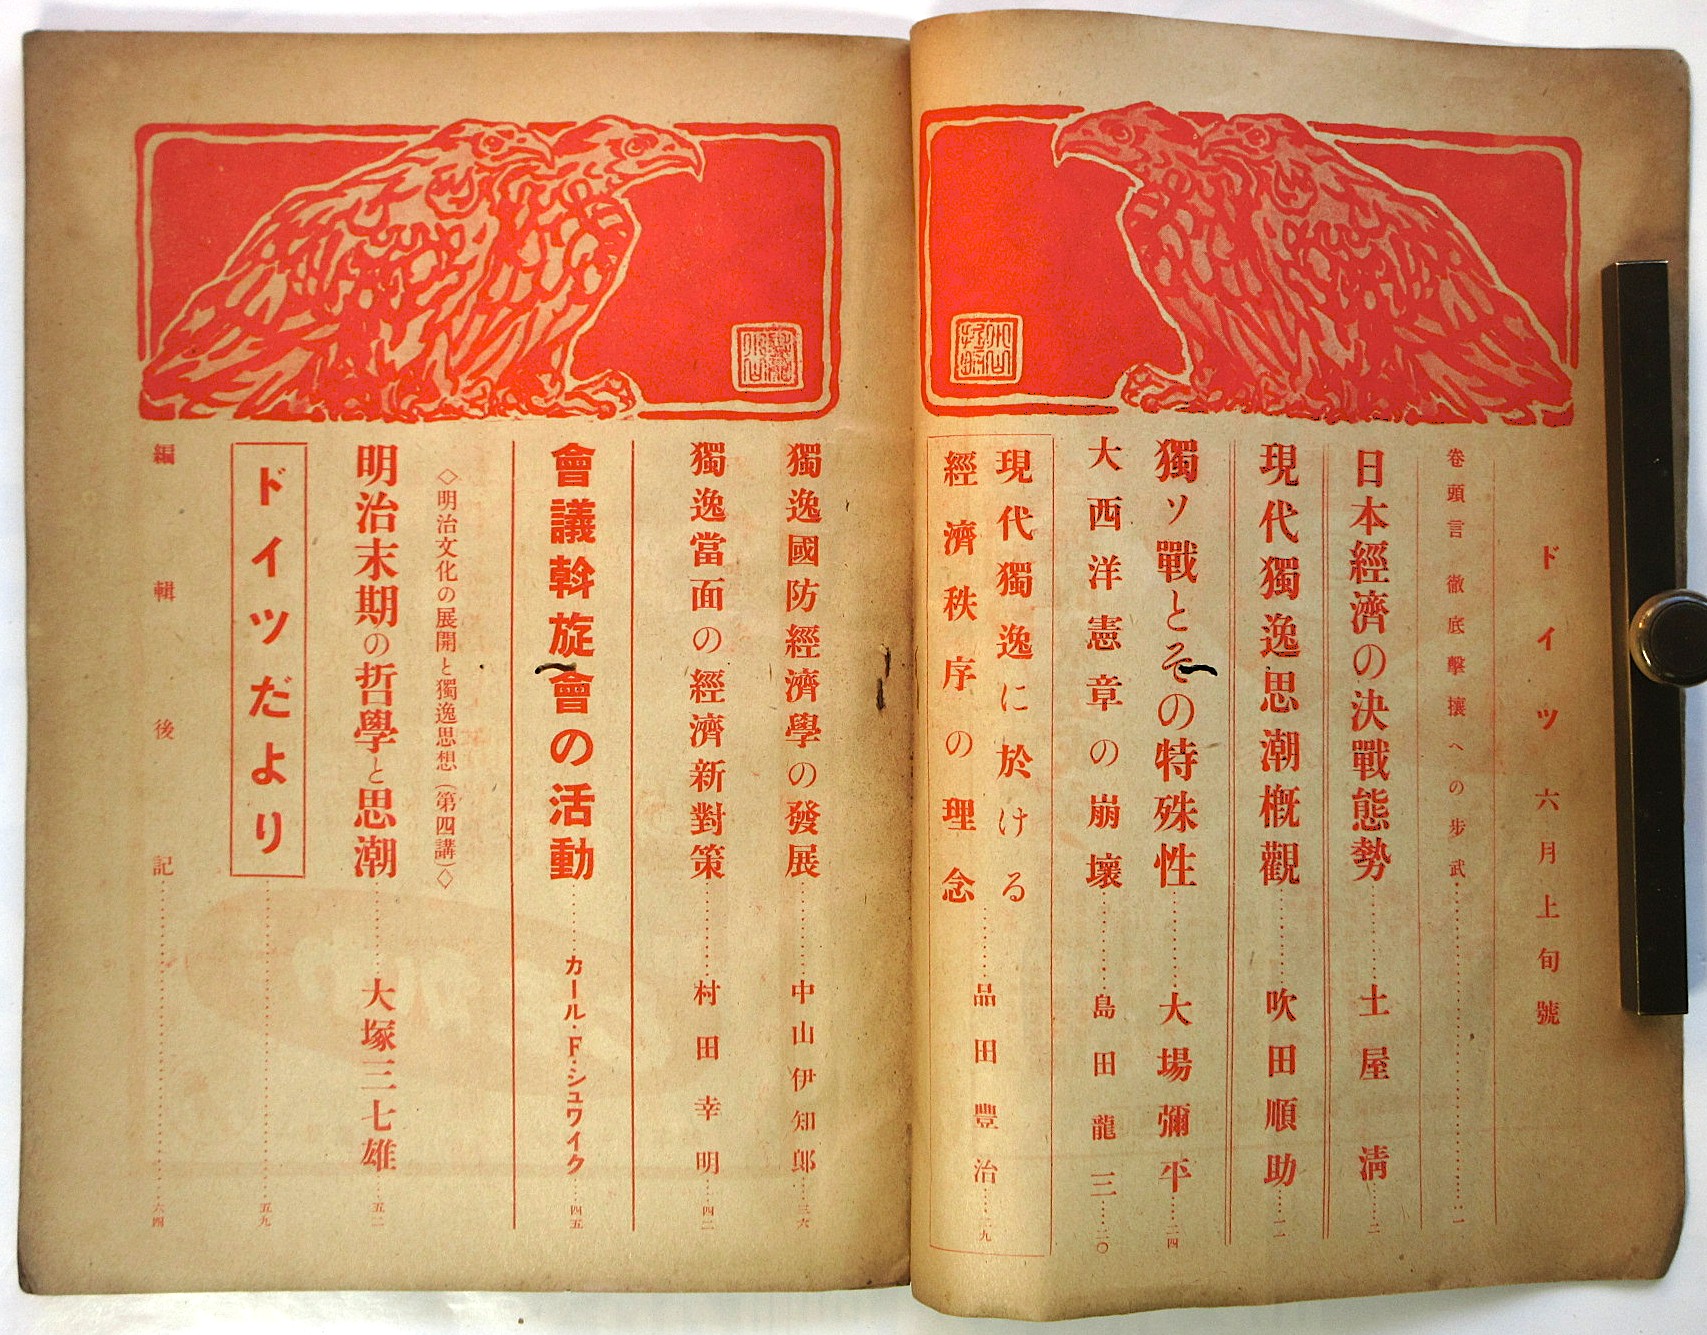 ドイツ 六月上旬號
卷頭言 徹底擊攘への步武……一
日本經濟の決戰態勢……土屋淸……二
現代獨逸思潮槪觀……吹田順助……一一
獨ソ戰とその特殊性……大場彌平……二四
大西洋憲章の崩壞……島田龍三……二〇
現代獨逸に於ける
經濟秩序の理念……品田豐治……二九
獨逸國防經濟學の發展……中山伊知郞……三六
獨逸當面の經濟新對策……村田幸明……四二
會議斡旋會の活動……カール・F・シュワイク……四五
◇明治文化の展開と獨逸思想(第四講)◇
明治末期の哲學と思潮……大塚三七雄……五二
ドイツだより……五九
編輯後記……六四